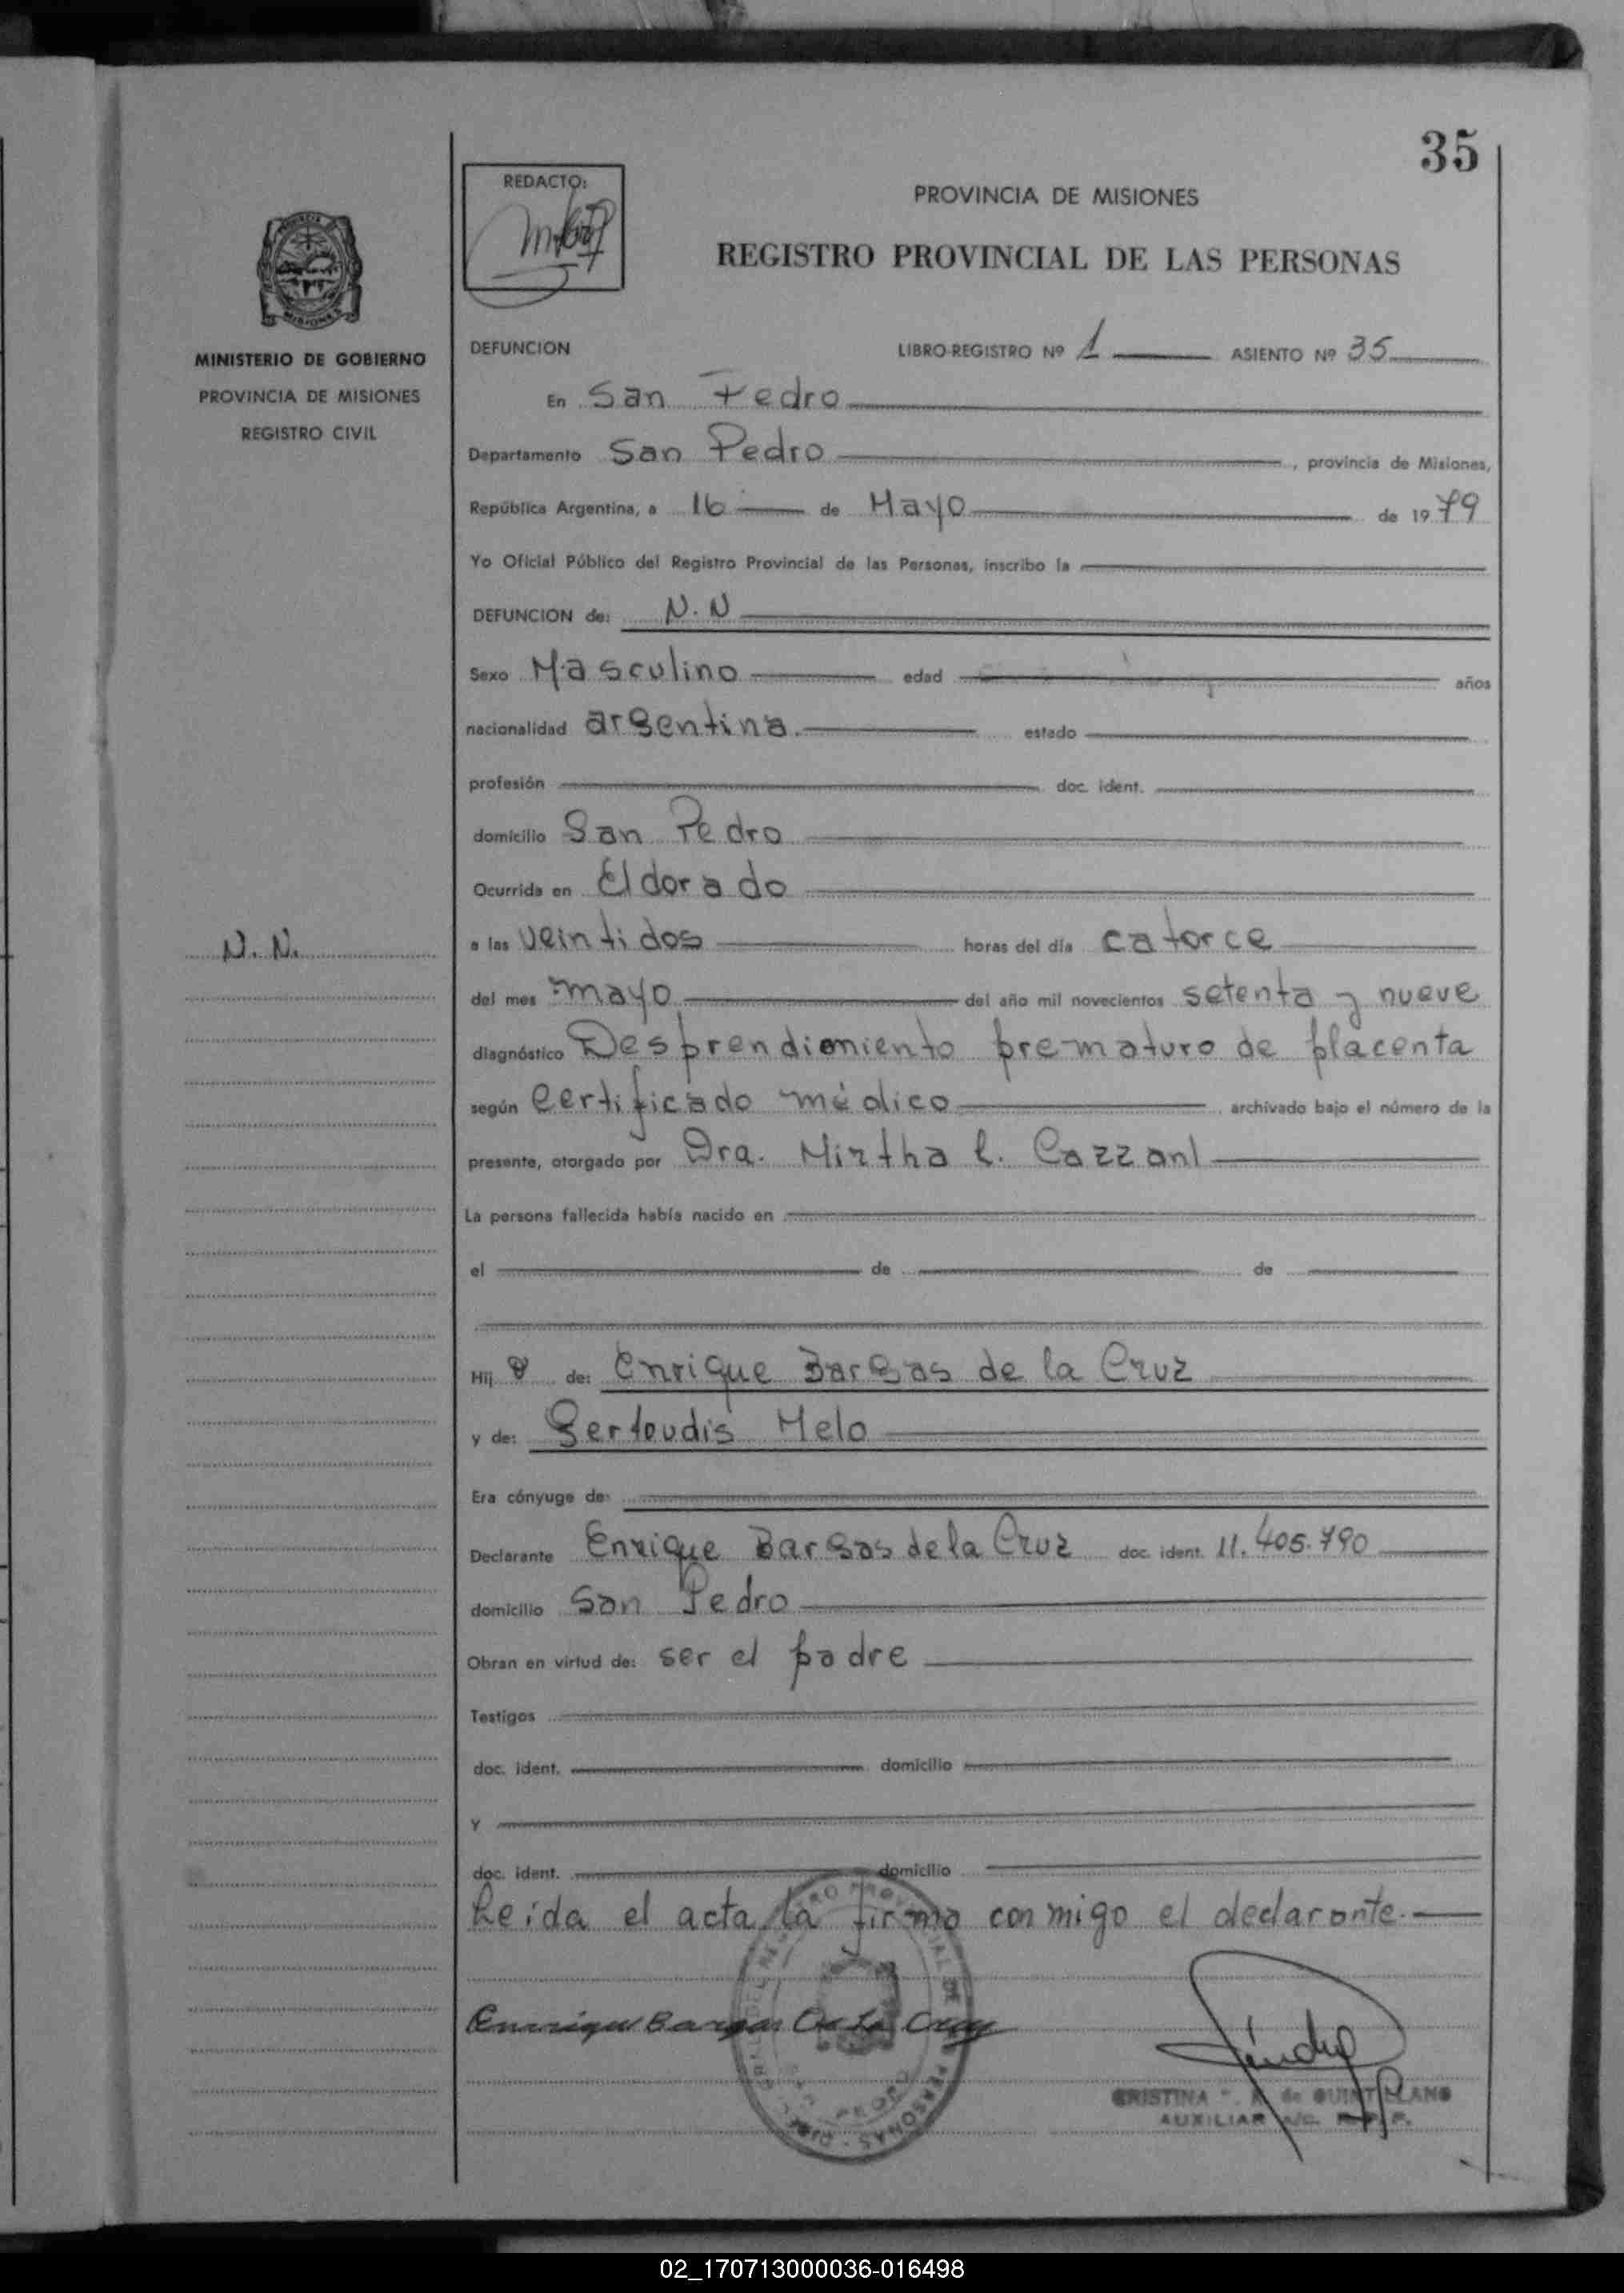 35
REDACTO:
PROVINCIA DE MISIONES
REGISTRO PROVINCIAL DE LAS PERSONAS
MISIONES
MINISTERIO DE GOBIERNO
PROVINCIA DE MISIONES
REGISTRO CIVIL
DEFUNCION LIBRO-REGISTRO Nº 1 ASIENTO Nº 35
En San Pedro
Departamento San Pedro, provincia de Misiones,
República Argentina, a 16 de Mayo de 1979
Yo Oficial Público del Registro Provincial de las Personas, inscribo la
DEFUNCION de: N.N
Sexo Masculino edad años
nacionalidad argentina. estado
profesión doc. ident.
domicilio San Pedro
Ocurrida en Eldorado
N. N.
a las veintidos horas del día catorce
del mes mayo del año mil novecientos setenta y nueve
diagnóstico Desprendimiento prematuro de placenta
según Certificado médico archivado bajo el número de la
presente, otorgado por Dra. Mirtha C. Cazzanl
La persona fallecida había nacido en
el de de
Hij o de: Enrique Bargas de la Cruz
y de: Gertoudis Melo
Era cónyuge de:
Declarante Enrique Bargas de la Cruz doc. ident. 11.405.790
domicilio San Pedro
Obran en virtud de: ser el padre
Testigos
doc. ident. domicilio
Y
doc. ident. domicilio
Leida el acta la firma conmigo el declarante.
Enrrique Bargas De La Cruz
CRISTINA de QUINTELANO
AUXILIAR A/C.
02_170713000036-016498